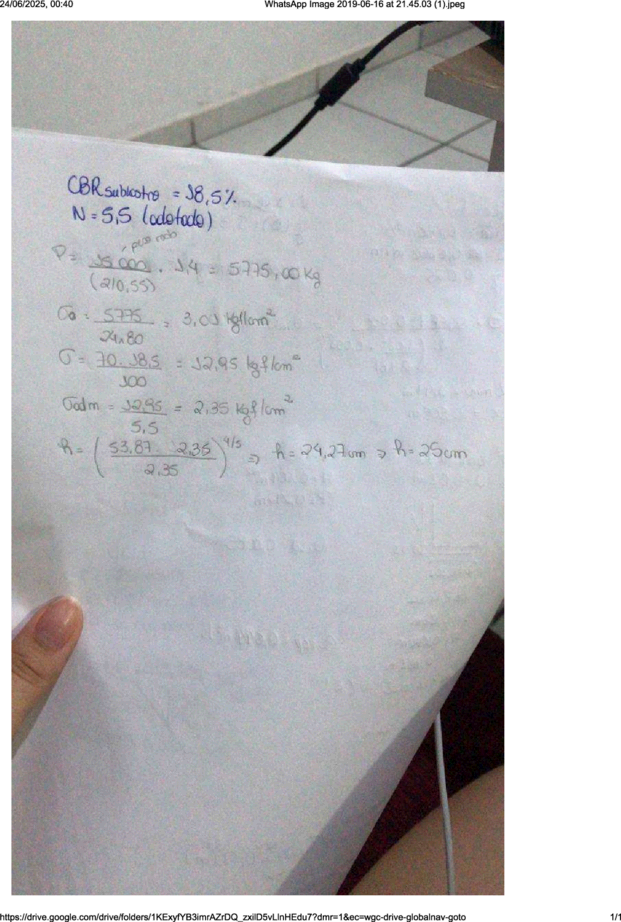 24/06/2025, 00:40 WhatsApp Image 2019-06-16 at 21.45.03 (1).jpeg
CBR subleito = 18,5%
N = 5,5 (adotado)
P = 15 000 / (2/0,55) . 1,4 = 5775,00 Kg
σa = 5775 / 24x80 = 3,01 kgf/cm²
σ = 70 . 18,5 / 100 = 12,95 kgf/cm²
σadm = 12,95 / 5,5 = 2,35 kgf/cm²
h = (53,87 . 2,35 / 2,35)^4/5 ⇒ h = 24,27cm ⇒ h = 25cm
https://drive.google.com/drive/folders/1KExyfYB3imrAZrDQ_zxilD5vLlnHEdu7?dmr=1&ec=wgc-drive-globalnav-goto 1/1